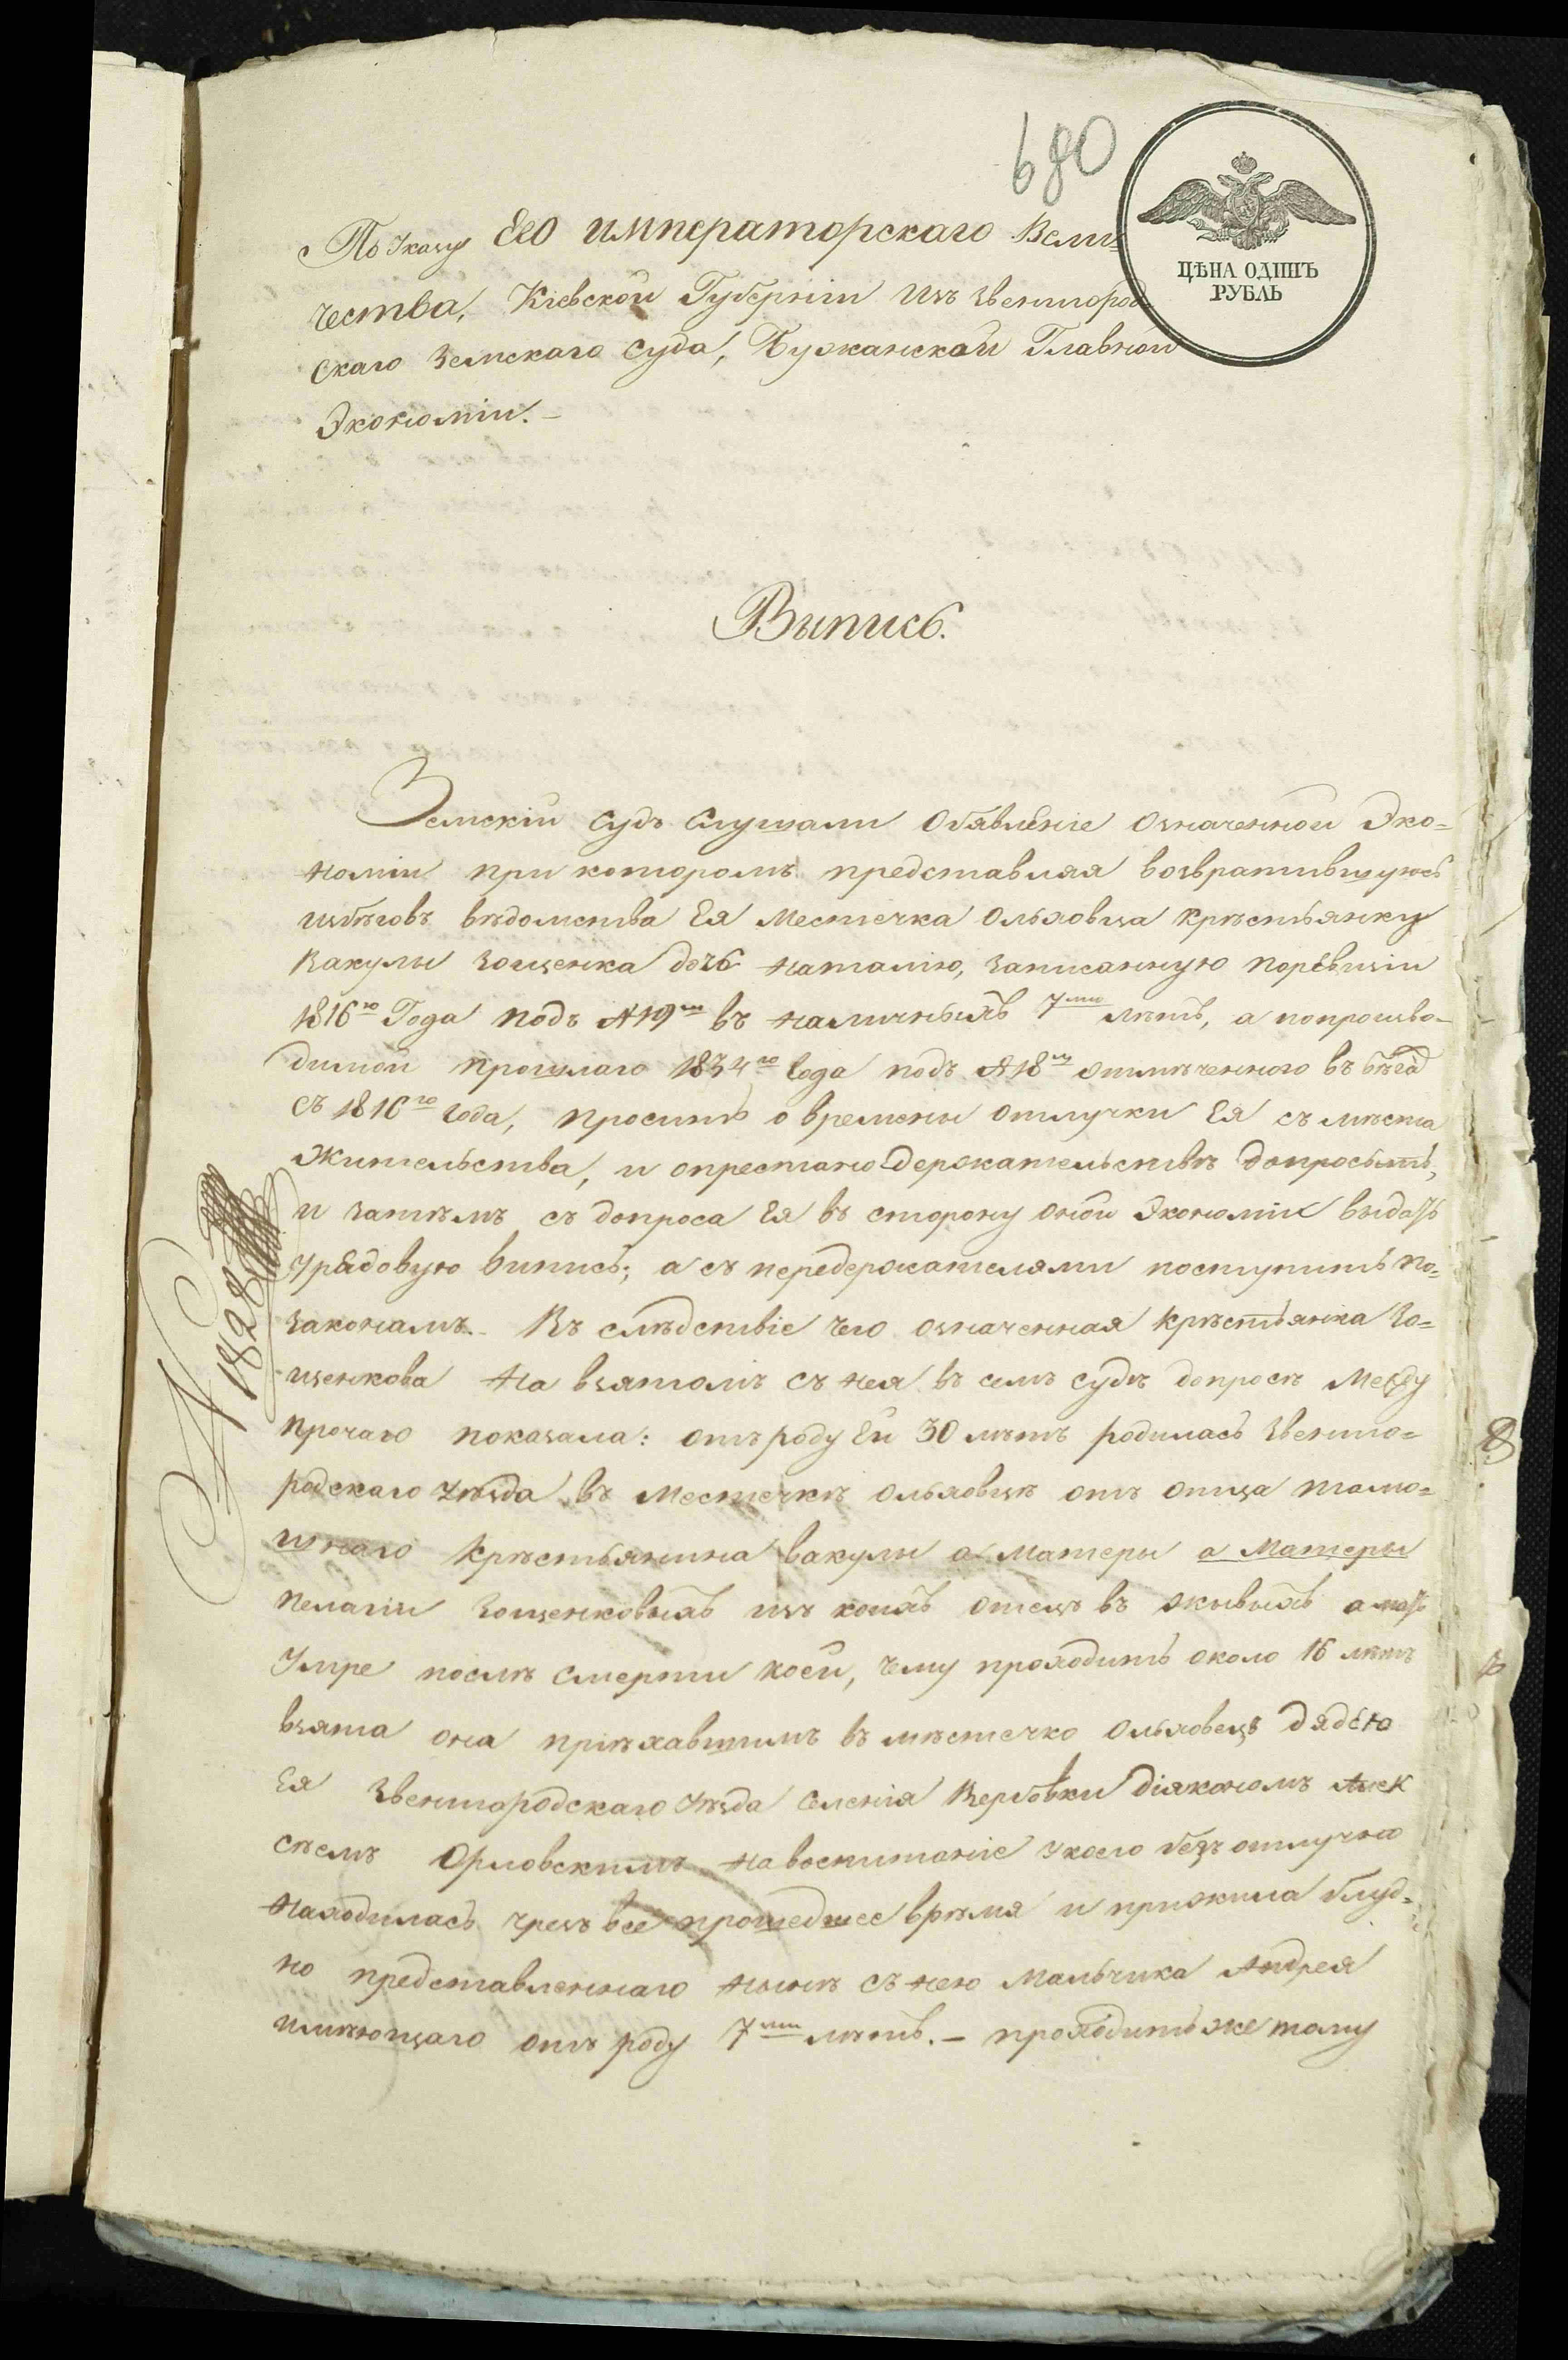 680
ЦѢНА ОДИНЪ
РУБЛЬ
По Указу Его императорскаго Вели-
чества, Кіевской Губерніи Изъ Звенигород
скаго Земскаго Суда, Бужанской Главной
Экономіи.-
Выпись.
Земскій Судъ Слушали Объявленіе Означенной Эко=
номіи при которомъ представляя возвратившуюсь
избѣговъ вѣдомства Ея Местечка Ольховца крѣстьянку
Вакулы Зощенка дочь Наталію, Записанную поревизіи
1816го Года подъ №19м въ Наличныхъ 7ми лѣтъ, а попроизво-
димой прошлаго 1834го Года подъ №18м отмѣченного въ бѣгах
съ 1816го Года, просить о времены отлучки Ея съ мѣста
Жительства, и опрестано держательствѣ допросыть,
и затѣмъ съ допроса Ея въ сторону оной Экономіи выдать
Урядовую Випись; а съ передержателями поступить по=
законамъ. Въ слѣдствіе чего означенная Крѣстьянка Зо=
щенкова На взятомъ съ нея въ семъ Судѣ допросѣ Между
прочаго показала: отъ роду Ей 30 лѣтъ родилась Звениго=
родскаго Уѣзда въ Местечкѣ Ольховцѣ отъ отца тамо=
шнаго Крѣстьянина Вакулы а Матеры а Матеры
Пелагіи Зощенковыхъ изъ коихъ отецъ въ живыхъ а мать
Умре послѣ Смерти коей, чему проходитъ около 16 лѣтъ
взята она пріѣхавшимъ въ мѣстечко Ольховецъ дядею
Ея Звенигородскаго Уѣзда Селенія Вербовки Діякономъ Алек
сѣемъ Орловскимъ На воспитаніе Укоего безъ отлучно
Находилась чрезъ все прошедшее врѣмя и прижила блуд=
но представленнаго Нынѣ съ нею Мальчика Андрея
имѣющаго отъ роду 7ми лѣтъ.- проходитъ же тому
№ 1828